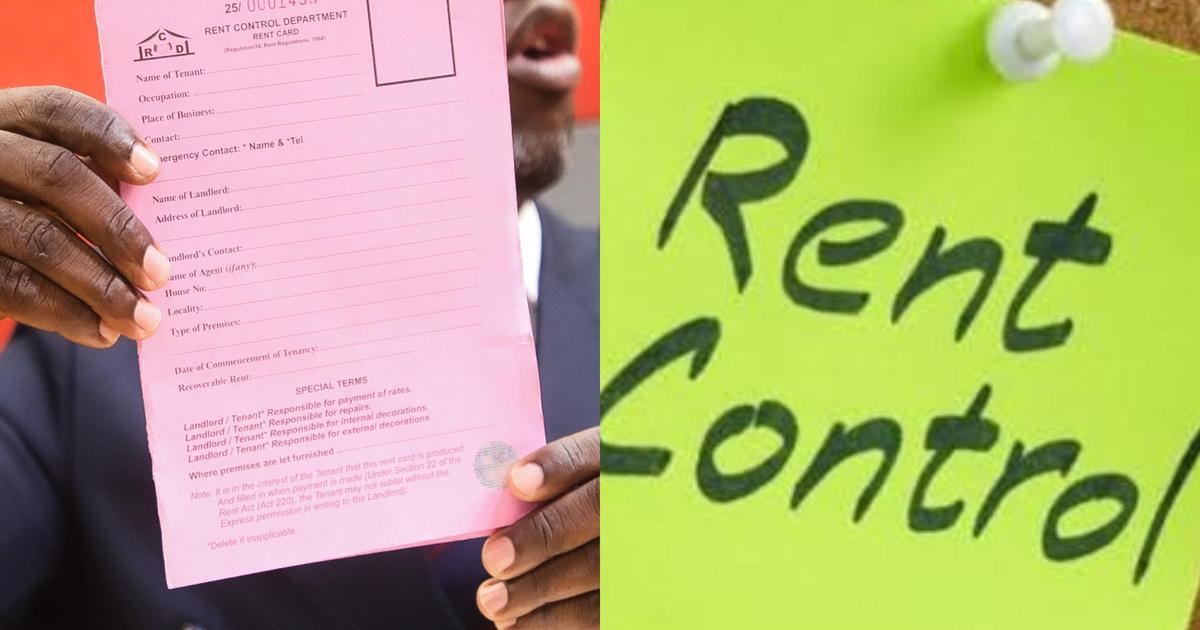 25/ 0001455
C
R D
RENT CONTROL DEPARTMENT
RENT CARD
(Regulation34, Rent Regulations, 1964)
Name of Tenant:
Occupation:
Place of Business:
Contact:
ergency Contact: * Name & *Tel
Name of Landlord:
Address of Landlord:
ndlord's Contact:
ame of Agent (if any):
House No:
Locality:
Type of Premises:
Date of Commencement of Tenancy:
Recoverable Rent:
SPECIAL TERMS
Landlord / Tenant* Responsible for payment of rates.
Landlord / Tenant* Responsible for repairs.
Landlord / Tenant* Responsible for internal decorations.
Landlord / Tenant* Responsible for external decorations
Where premises are let furnished
Note: it is in the interest of the Tenant that this rent card is produced
And filled in when payment is made (Under Section 22 of the
Rent Act (Act 220), the Tenant may not sublet without the
Express permission in writing to the Landlord):
*Delete if inapplicable
Rent
Control